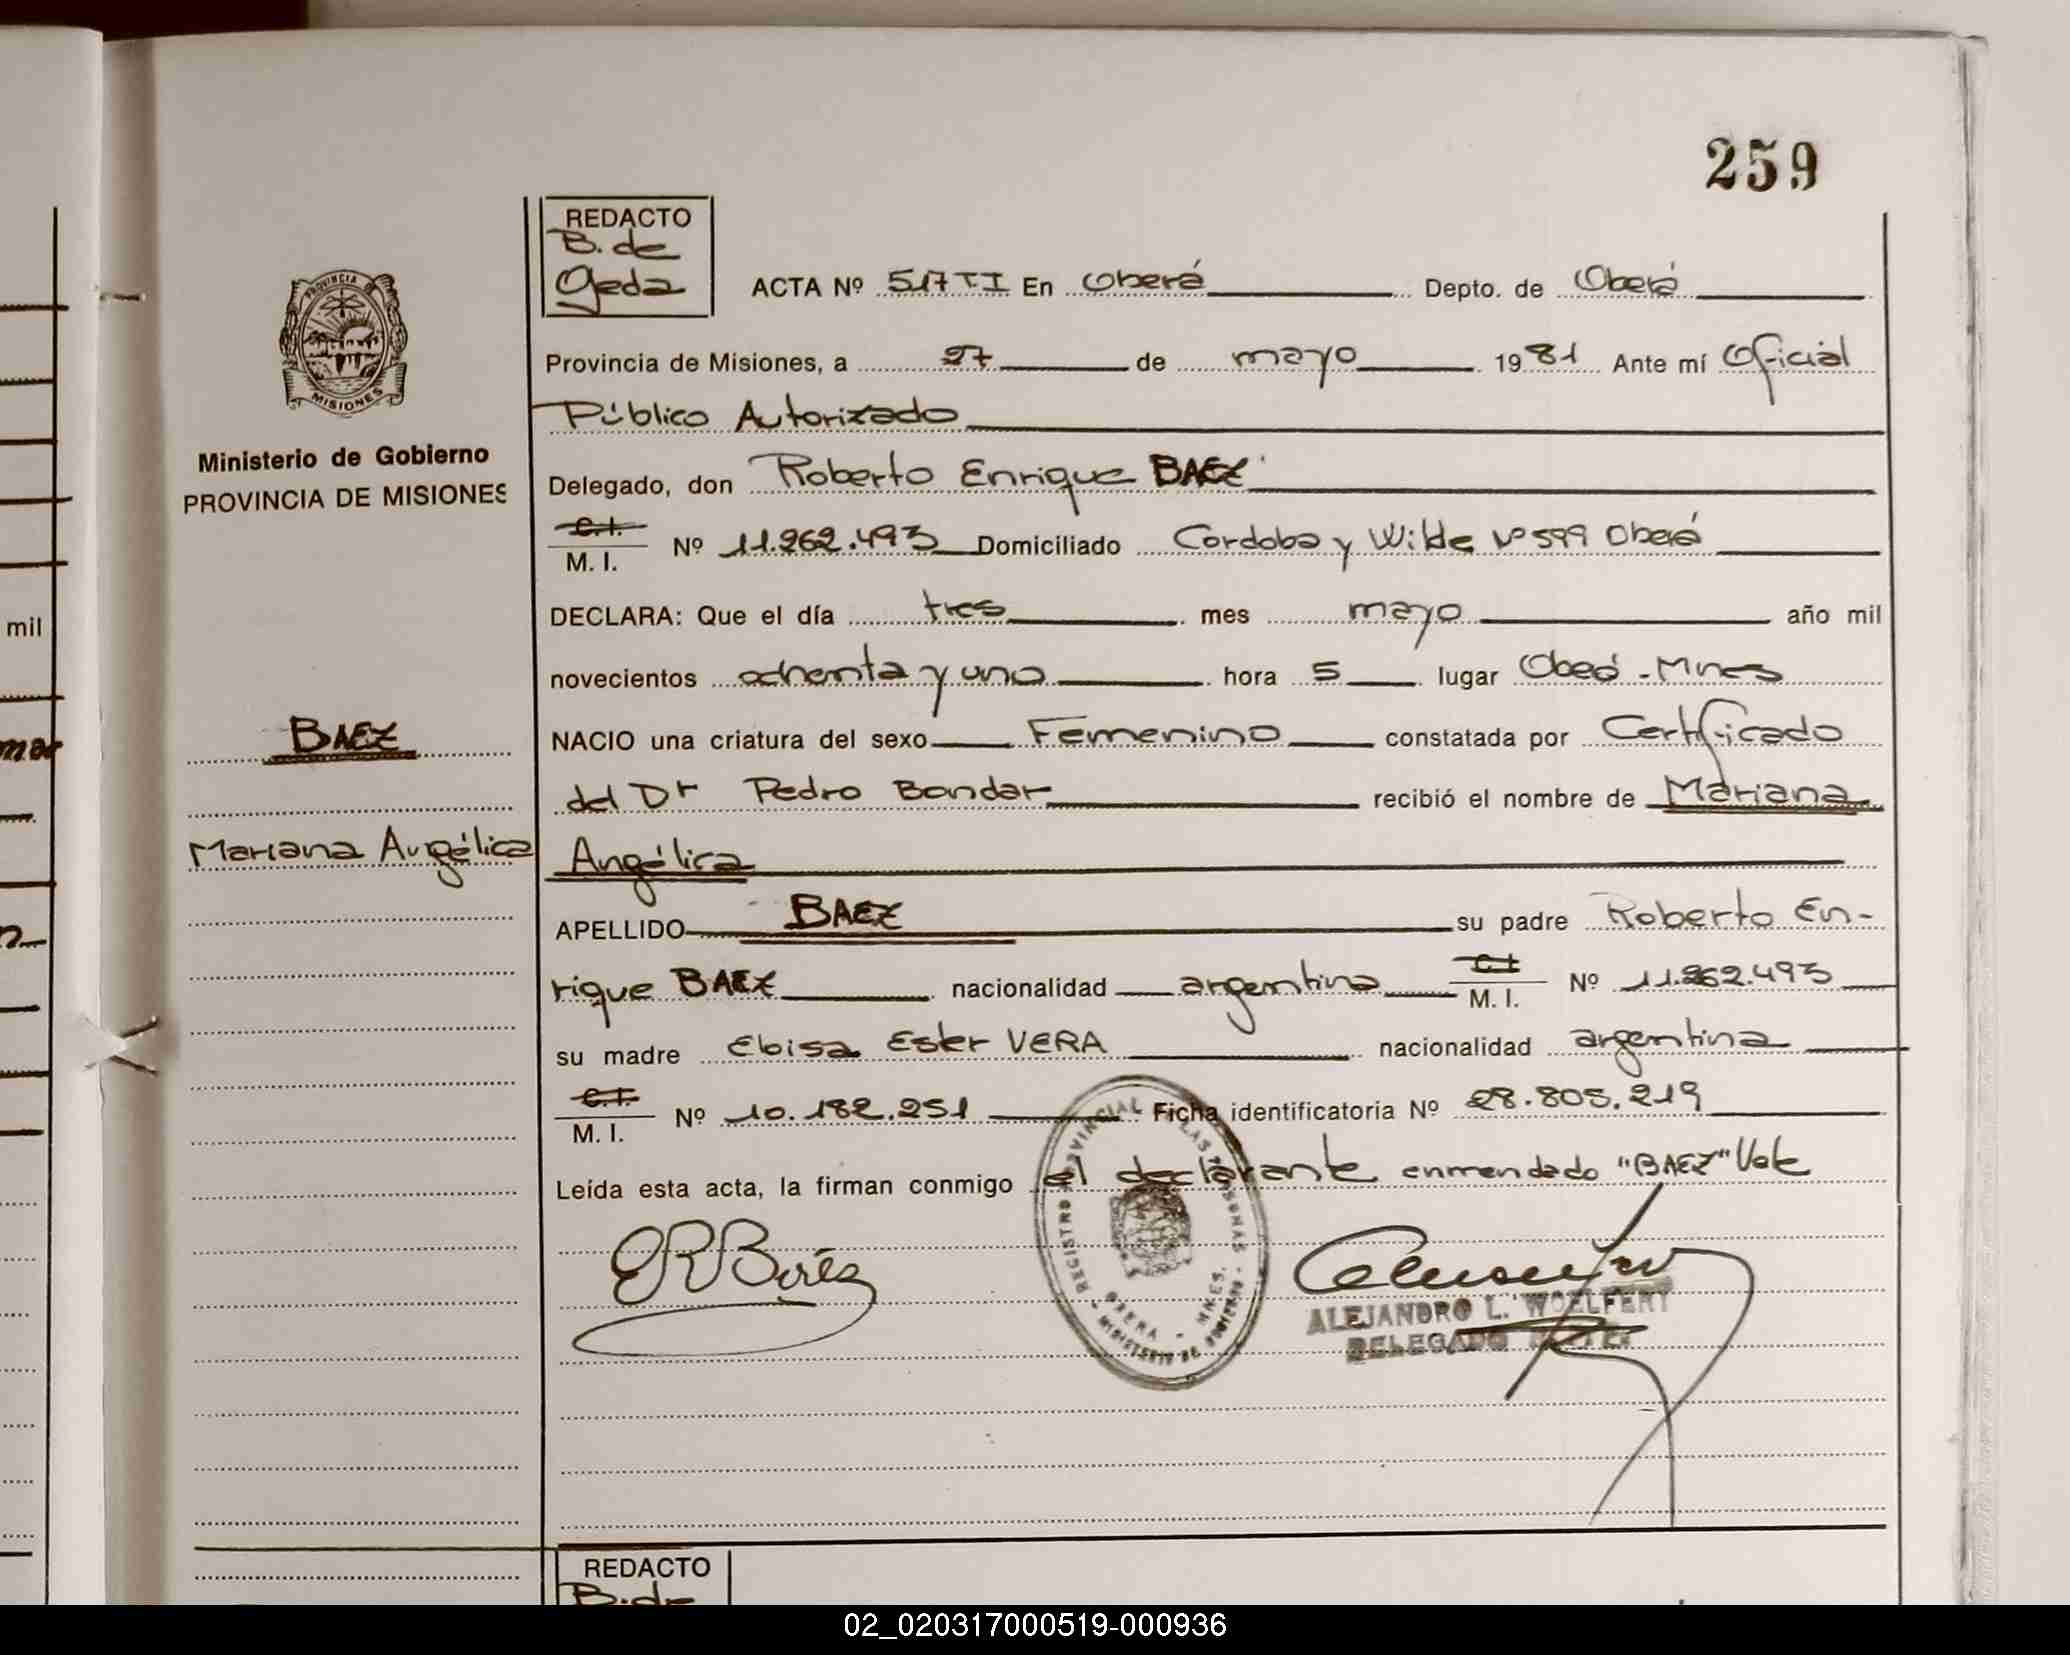 259
REDACTO
B. de
Ojeda
ACTA Nº 517 TI En Oberá Depto. de Oberá
Provincia de Misiones, a 27 de mayo 1981 Ante mí Oficial
Público Autorizado
Delegado, don Roberto Enrique BAEZ
C.I.
M. I. Nº 11.262.493 Domiciliado Cordoba y Wilde Nº 599 Oberá
DECLARA: Que el día tres mes mayo año mil
novecientos ochenta y uno hora 5 lugar Oberá - Mnes
NACIO una criatura del sexo Femenino constatada por Certificado
del Dr Pedro Bondar recibió el nombre de Mariana
Angélica
APELLIDO BAEZ su padre Roberto En-
rique BAEZ nacionalidad argentina C.I. M. I. Nº 11.262.493
su madre Elvisa Ester VERA nacionalidad argentina
C.I.
M. I. Nº 10.182.251 Ficha identificatoria Nº 28.805.219
Leída esta acta, la firman conmigo el declarante enmendado "BAEZ" Vale
PROVINCIA DE
MISIONES
Ministerio de Gobierno
PROVINCIA DE MISIONES
BAEZ
Mariana Angélica
REGISTRO PROVINCIAL DE LAS PERSONAS - MINISTERIO DE GOBIERNO
OBERA - MNES.
ALEJANDRO L. WOELFERT
DELEGADO
REDACTO
B. de
mil
mar
02_020317000519-000936